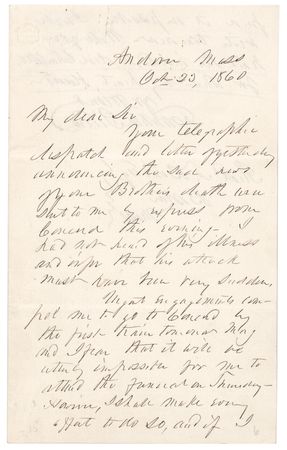 Andover Mass
Oct 23, 1860
My dear Sir
Your telegraphic
dispatch and letter of yesterday
announcing the sad news
of your Brother's death were
sent to me by express from
Concord this evening. I
had not heard of his illness
and infer that his attack
must have been very sudden.
Urgent Engagements com-
pel me to go to Concord by
the first train tomorrow Mng
and I fear that it will be
utterly impossible for me to
attend the funeral on Thursday-
However, I shall make every
effort to do so, and if I